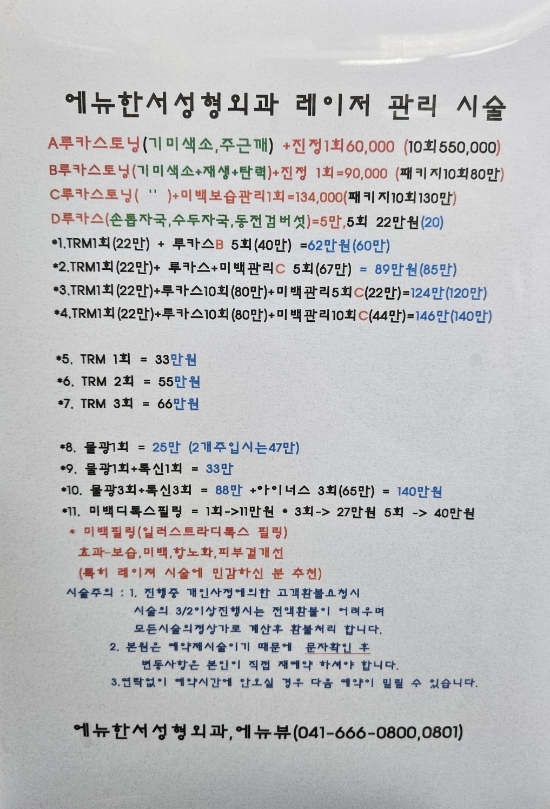 에뉴한서성형외과 레이저 관리 시술
A루카스토닝(기미색소,주근깨) +진정1회60,000 (10회550,000)
B루카스토닝(기미색소+재생+탄력)+진정 1회=90,000 (패키지10회80만)
C루카스토닝( '' )+미백보습관리1회=134,000(패키지10회130만)
D루카스(손톱자국,수두자국,동전검버섯)=5만,5회 22만원(20)
*1.TRM1회(22만) + 루카스B 5회(40만) =62만원(60만)
*2.TRM1회(22만)+ 루카스+미백관리C 5회(67만) = 89만원(85만)
*3.TRM1회(22만)+루카스10회(80만)+미백관리5회C(22만)=124만(120만)
*4.TRM1회(22만)+루카스10회(80만)+미백관리10회C(44만)=146만(140만)
*5. TRM 1회 = 33만원
*6. TRM 2회 = 55만원
*7. TRM 3회 = 66만원
*8. 물광1회 = 25만 (2개주입시는47만)
*9. 물광1회+톡신1회 = 33만
*10. 물광3회+톡신3회 = 88만 +아이너스 3회(65만) = 140만원
*11. 미백디톡스필링 = 1회->11만원 * 3회-> 27만원 5회 -> 40만원
* 미백필링(일러스트라디톡스 필링)
효과-보습,미백,항노화,피부결개선
(특히 레이저 시술에 민감하신 분 추천)
시술주의 : 1. 진행중 개인사정에의한 고객환불요청시
시술의 3/2이상진행시는 전액환불이 어려우며
모든시술의정상가로 계산후 환불처리 합니다.
2. 본원은 예약제시술이기 때문에 문자확인 후
변동사항은 본인이 직접 재예약 하셔야 합니다.
3.연락없이 예약시간에 안오실 경우 다음 예약이 밀릴 수 있습니다.
에뉴한서성형외과,에뉴뷰(041-666-0800,0801)